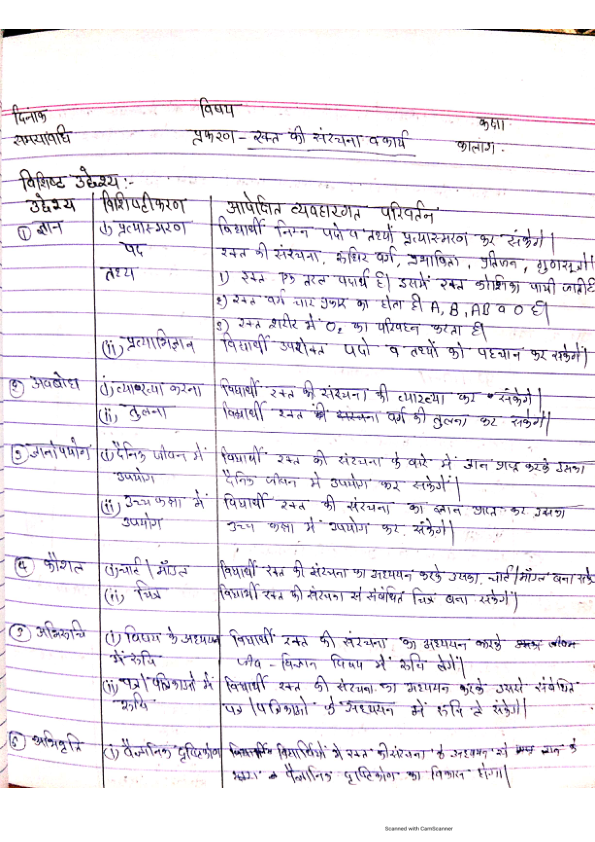 दिनांक विषय कक्षा
समयावधि प्रकरण - रक्त की संरचना व कार्य कालांश
विशिष्ट उद्देश्य :-
उद्देश्य विशिष्टीकरण अपेक्षित व्यवहारगत परिवर्तन
① ज्ञान (i) प्रत्यास्मरण विद्यार्थी निम्न पदो व तथ्यों प्रत्यास्मरण कर सकेंगे।
पद रक्त की संरचना, रूधिर वर्ग, प्रतिजन,
तथ्य 1) रक्त एक तरल पदार्थ है। इसमें रक्त कोशिका पायी जाती है
2) रक्त वर्ग चार प्रकार का होता है। A, B, AB व O है।
3) रक्त शरीर में O₂ का परिवहन करता है।
(ii) प्रत्याभिज्ञान विद्यार्थी उपरोक्त पदो व तथ्यों को पहचान कर सकेंगे।
② अवबोध (i) व्याख्या करना विद्यार्थी रक्त की संरचना की व्याख्या कर सकेंगे।
(ii) तुलना विद्यार्थी रक्त वर्ग की तुलना कर सकेंगे।
③ ज्ञानोपयोग (i) दैनिक जीवन में विद्यार्थी रक्त की संरचना के बारे में ज्ञान प्राप्त करके उसका
उपयोग दैनिक जीवन में उपयोग कर सकेंगे।
(ii) उच्च कक्षा में विद्यार्थी रक्त की संरचना का ज्ञान प्राप्त कर उसका
उपयोग उच्च कक्षा में उपयोग कर सकेंगे।
④ कौशल (i) चार्ट / मॉडल विद्यार्थी रक्त की संरचना का अध्ययन करके उसका चार्ट / मॉडल बना सकेंगे
(ii) चित्र विद्यार्थी रक्त की संरचना से संबंधित चित्र बना सकेंगे।
⑤ अभिरूचि (i) विषय के अध्ययन विद्यार्थी रक्त की संरचना का अध्ययन करके
में रूचि जीव - विज्ञान विषय में रूचि लेंगे।
(ii) पत्र / पत्रिकाओं में विद्यार्थी रक्त की संरचना का अध्ययन करके उससे संबंधित
रूचि पत्र / पत्रिकाओं के अध्ययन में रूचि ले सकेंगे।
⑥ अभिवृत्ति (i) वैज्ञानिक दृष्टिकोण विद्यार्थियों में रक्त की संरचना के अध्ययन से ज्ञान के
वैज्ञानिक दृष्टिकोण का विकास होगा।
Scanned with CamScanner